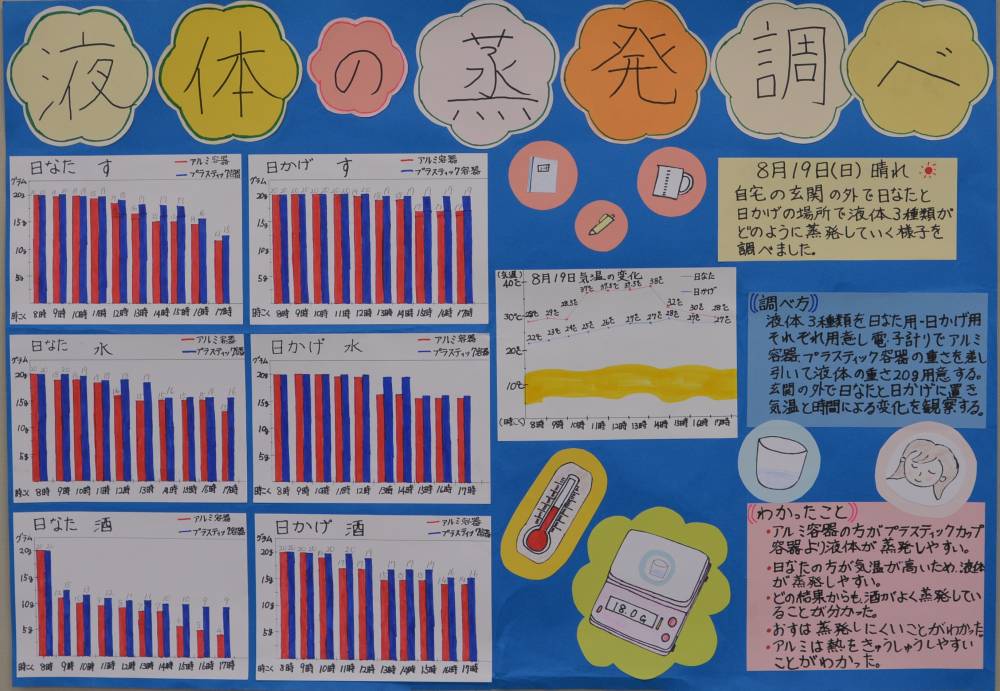 液体の蒸発調べ
日なた す
アルミ容器
プラスティック容器
グラム
20g
15g
10g
5g
時こく 8時 9時 10時 11時 12時 13時 14時 15時 16時 17時
日かげ す
アルミ容器
プラスティック容器
グラム
20g
15g
10g
5g
時こく 8時 9時 10時 11時 12時 13時 14時 15時 16時 17時
日なた 水
アルミ容器
プラスティック容器
グラム
20g
15g
10g
5g
時こく 8時 9時 10時 11時 12時 13時 14時 15時 16時 17時
日かげ 水
アルミ容器
プラスティック容器
グラム
20g
15g
10g
5g
時こく 8時 9時 10時 11時 12時 13時 14時 15時 16時 17時
日なた 酒
アルミ容器
プラスティック容器
グラム
20g
15g
10g
5g
時こく 8時 9時 10時 11時 12時 13時 14時 15時 16時 17時
日かげ 酒
アルミ容器
プラスティック容器
グラム
20g
15g
10g
5g
時こく 8時 9時 10時 11時 12時 13時 14時 15時 16時 17時
8月19日(日) 晴れ
自宅の玄関の外で日なたと
日かげの場所で液体3種類が
どのように蒸発していく様子を
調べました。
(気温)
8月19日気温の変化
日なた
日かげ
40℃
30℃
20℃
10℃
(時こく) 8時 9時 10時 11時 12時 13時 14時 15時 16時 17時
((調べ方))
液体3種類を日なた用・日かげ用
それぞれ用意し電子計りでアルミ
容器プラスティック容器の重さを差し
引いて液体の重さ20g用意する。
玄関の外で日なたと日かげに置き
気温と時間による変化を観察する。
18.0G
((わかったこと))
・アルミ容器の方がプラスティックカップ
容器より液体が蒸発しやすい。
・日なたの方が気温が高いため、液体
が蒸発しやすい。
・どの結果からも、酒がよく蒸発してい
ることが分かった。
・おすは蒸発しにくいことがわかった
・アルミは熱をきゅうしゅうしやすい
ことがわかった。